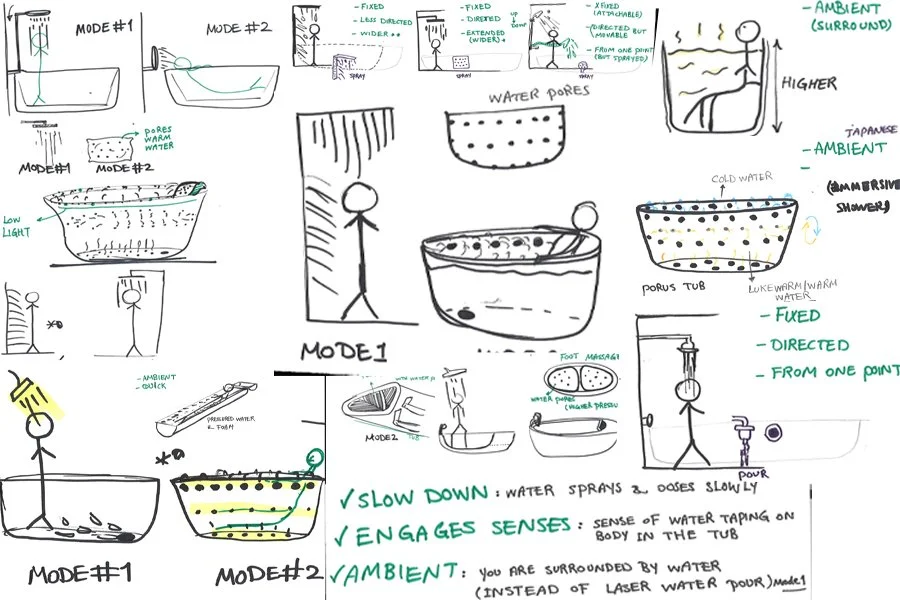 MODE#1
MODE#2
- FIXED
- LESS DIRECTED
- WIDER
SPRAY
- FIXED
- DIRECTED
- EXTENDED
(WIDER)
UP
DOWN
SPRAY
- XFIXED
(ATTACHABLE)
- DIRECTED BUT
MOVABLE
- FROM ONE POINT
(BUT SPRAYED)
SPRAY
- AMBIENT
(SURROUND)
HIGHER
PORES
WARM
WATER
MODE#1
MODE#2
LOW
LIGHT
WATER PORES
MODE1
JAPANESE
- AMBIENT
(IMMERSIVE
SHOWER)
COLD WATER
PORUS TUB
LUKEWARM/WARM
WATER
- FIXED
- DIRECTED
- FROM ONE POINT
POUR
- AMBIENT
- QUICK
PRESSURED WATER
& FOAM
MODE#1
MODE#2
WITH WATER
MODE2
TUB
FOOT MASSAGE
WATER PORES
(HIGHER PRESSU
✓ SLOW DOWN : WATER SPRAYS & DOSES SLOWLY
✓ ENGAGES SENSES : SENSE OF WATER TAPING ON
BODY IN THE TUB
✓ AMBIENT : YOU ARE SURROUNDED BY WATER
(INSTEAD OF LASER WATER POUR) Mode1